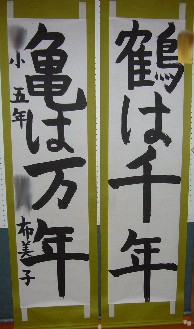 鶴は千年
亀は万年
小五年
布美子